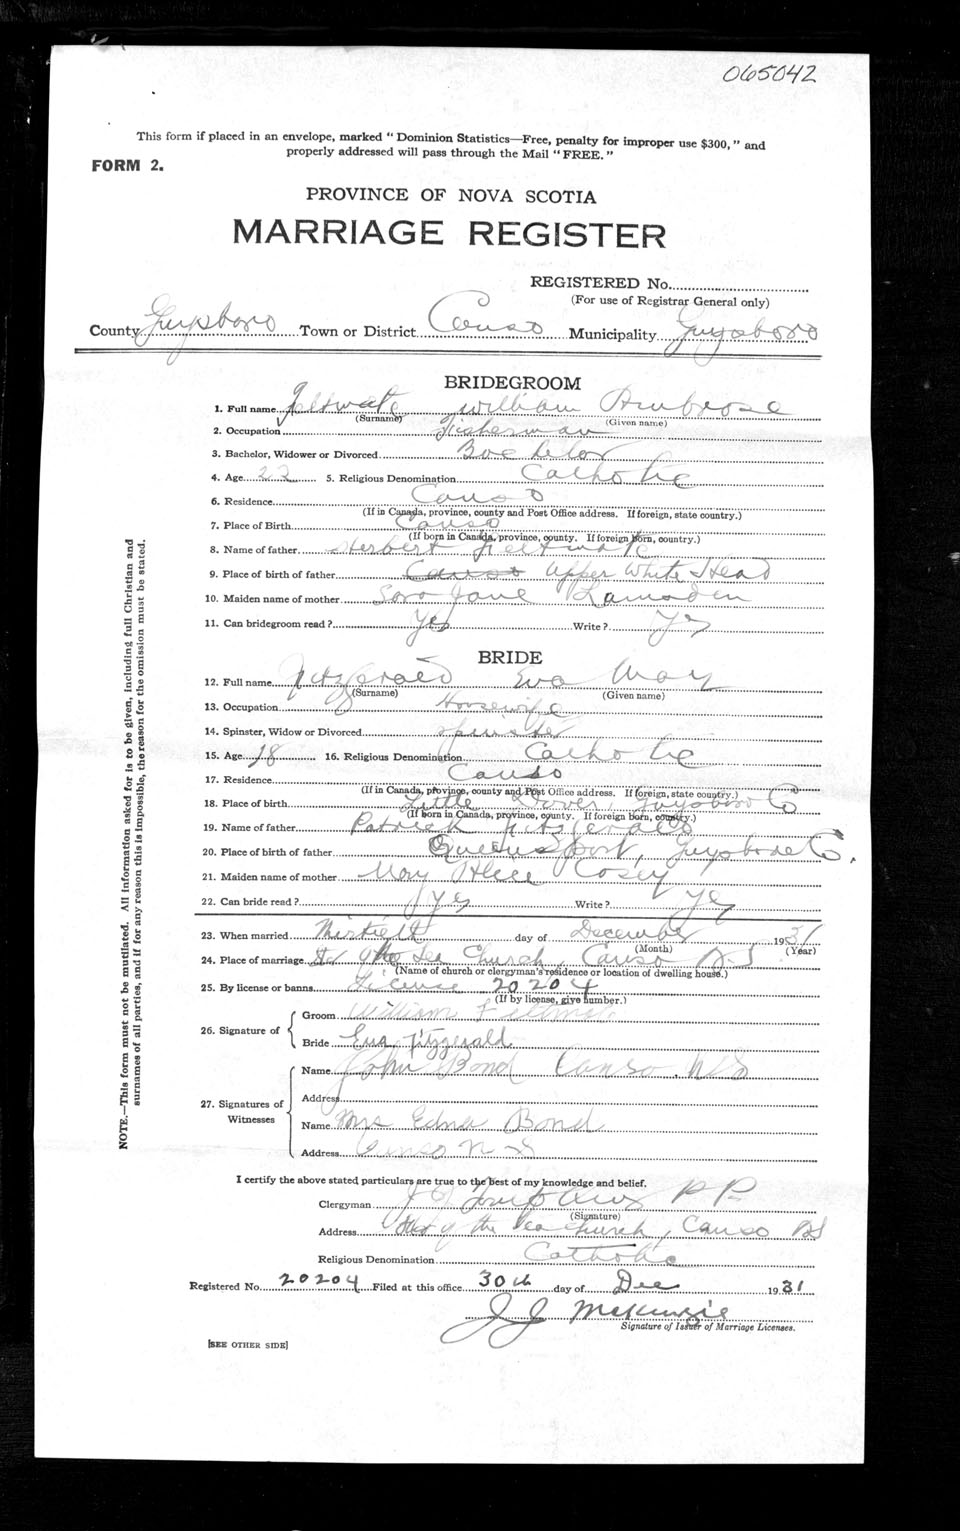 065042
This form if placed in an envelope, marked "Dominion Statistics—Free, penalty for improper use $300," and
properly addressed will pass through the Mail "FREE."
FORM 2.
PROVINCE OF NOVA SCOTIA
MARRIAGE REGISTER
REGISTERED No.
(For use of Registrar General only)
County Guysboro Town or District Canso Municipality Guysboro
BRIDEGROOM
1. Full name Feltmate William Ambrose
(Surname) (Given name)
2. Occupation Fisherman
3. Bachelor, Widower or Divorced Bachelor
4. Age 22 5. Religious Denomination Catholic
6. Residence Canso
(If in Canada, province, county and Post Office address. If foreign, state country.)
7. Place of Birth Canso
(If born in Canada, province, county. If foreign born, country.)
8. Name of father Herbert Feltmate
9. Place of birth of father Canso Upper White Head
10. Maiden name of mother Sara Jane Lumsden
11. Can bridegroom read? Yes Write? Yes
BRIDE
12. Full name Fitzgerald Eva May
(Surname) (Given name)
13. Occupation Housewife
14. Spinster, Widow or Divorced Spinster
15. Age 18 16. Religious Denomination Catholic
17. Residence Canso
(If in Canada, province, county and Post Office address. If foreign, state country.)
18. Place of birth Little Dover, Guysboro Co
(If born in Canada, province, county. If foreign born, country.)
19. Name of father Patrick Fitzgerald
20. Place of birth of father Queensport, Guysboro Co.
21. Maiden name of mother May Alice Casey
22. Can bride read? Yes Write? Yes
23. When married day of December 1931
(Month) (Year)
24. Place of marriage Star of the Sea Church, Canso N.S
(Name of church or clergyman's residence or location of dwelling house.)
25. By license or banns License 20204
(If by license, give number.)
26. Signature of
Groom William Feltmate
Bride Eva Fitzgerald
27. Signatures of Witnesses
Name John Bond Canso, N.S
Address
Name Mrs Edna Bond
Address Canso N-S
I certify the above stated particulars are true to the best of my knowledge and belief.
Clergyman P.P.
(Signature)
Address Star of the Sea Church, Canso NS
Religious Denomination Catholic
Registered No. 20204 Filed at this office 30th day of Dec 1931
J J McKenzie
Signature of Issuer of Marriage Licenses.
[SEE OTHER SIDE]
NOTE.—This form must not be mutilated. All information asked for is to be given, including full Christian and
surnames of all parties, and if for any reason this is impossible, the reason for the omission must be stated.